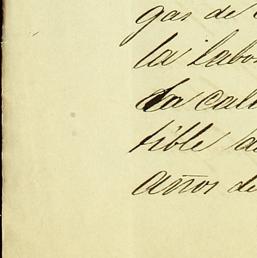 gas de
la labo
la cal
tible
años de